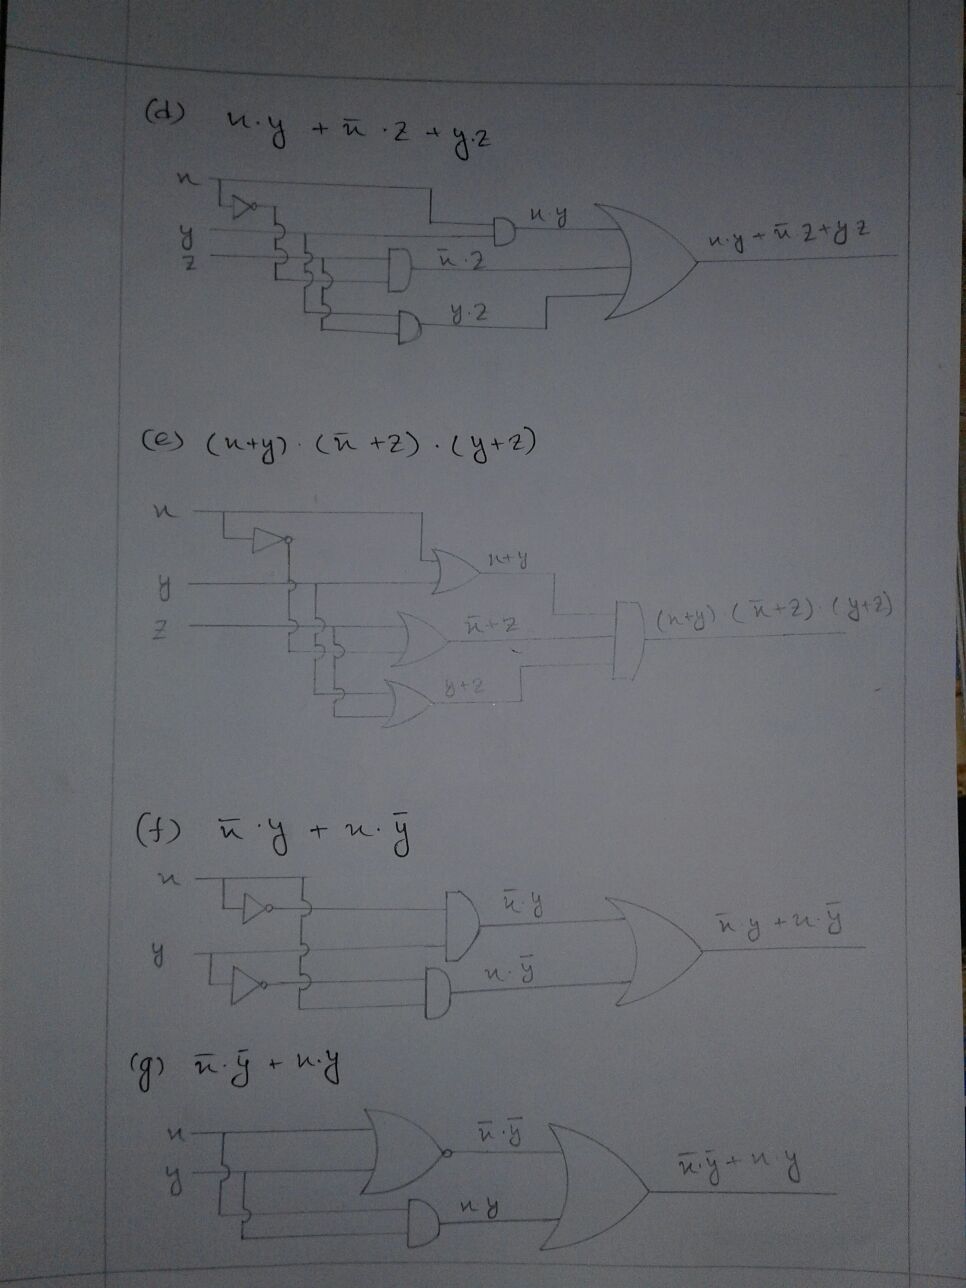 (d) x·y + x̄·z + y·z
x
y
z
x·y
x̄·z
y·z
x·y + x̄·z + y·z
(e) (x+y)·(x̄+z)·(y+z)
x
y
z
x+y
x̄+z
y+z
(x+y)·(x̄+z)·(y+z)
(f) x̄·y + x·ȳ
x
y
x̄·y
x·ȳ
x̄·y + x·ȳ
(g) x̄·ȳ + x·y
x
y
x̄·ȳ
x·y
x̄·ȳ + x·y